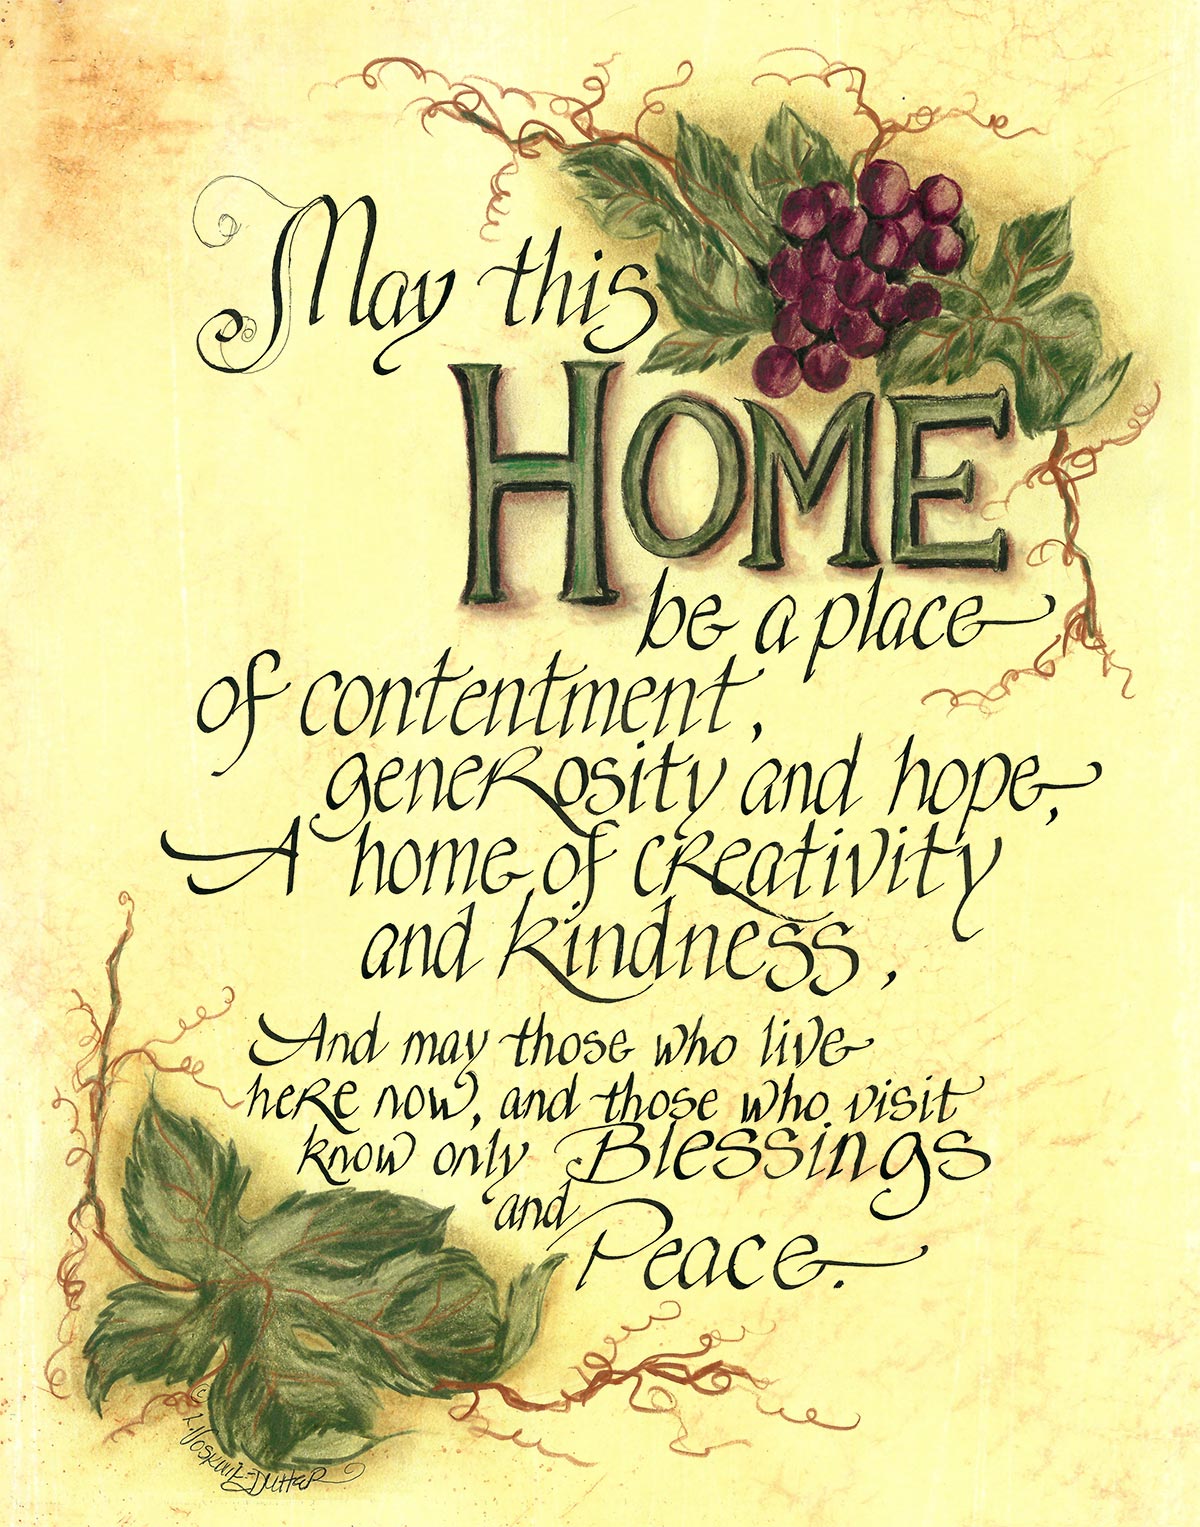 May this
HOME
be a place
of contentment,
generosity and hope,
A home of creativity
and kindness,
And may those who live
here now, and those who visit
know only Blessings
and
Peace.
© L. Voskuil-Dutter